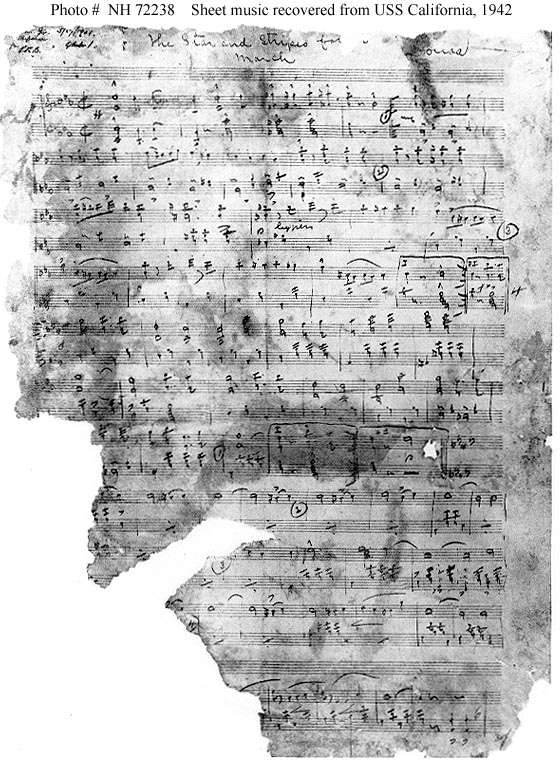 Photo # NH 72238 Sheet music recovered from USS California, 1942
The Star and Stripes for Sousa
March